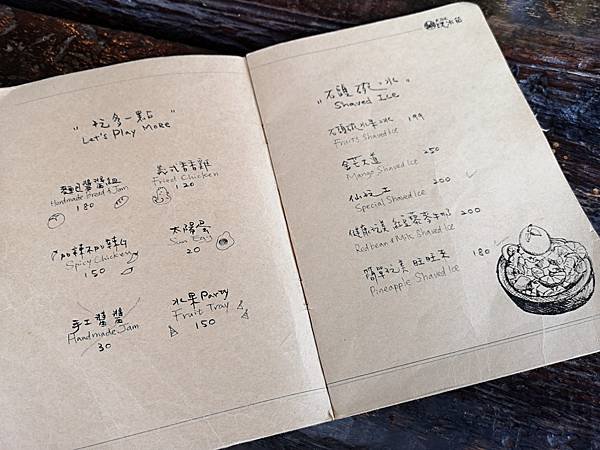 "玩多一點"
Let's Play More
麵包醬醬組
Handmade bread & Jam
180
義式香香雞
Fried Chicken
120
加辣不加辣
Spicy Chicken
150
太陽蛋
Sun Egg
20
手工醬醬
Handmade Jam
30
水果Party
Fruit Tray
150
冰店
"石頭 冰"
Shaved Ice
水果冰 199
Fruits Shaved Ice
大道 250
Mango Shaved Ice
仙 200
Special Shaved Ice
紅豆 牛奶 200
Redbean & Milk Shaved Ice
簡單玩美 旺旺來 180
Pineapple Shaved Ice